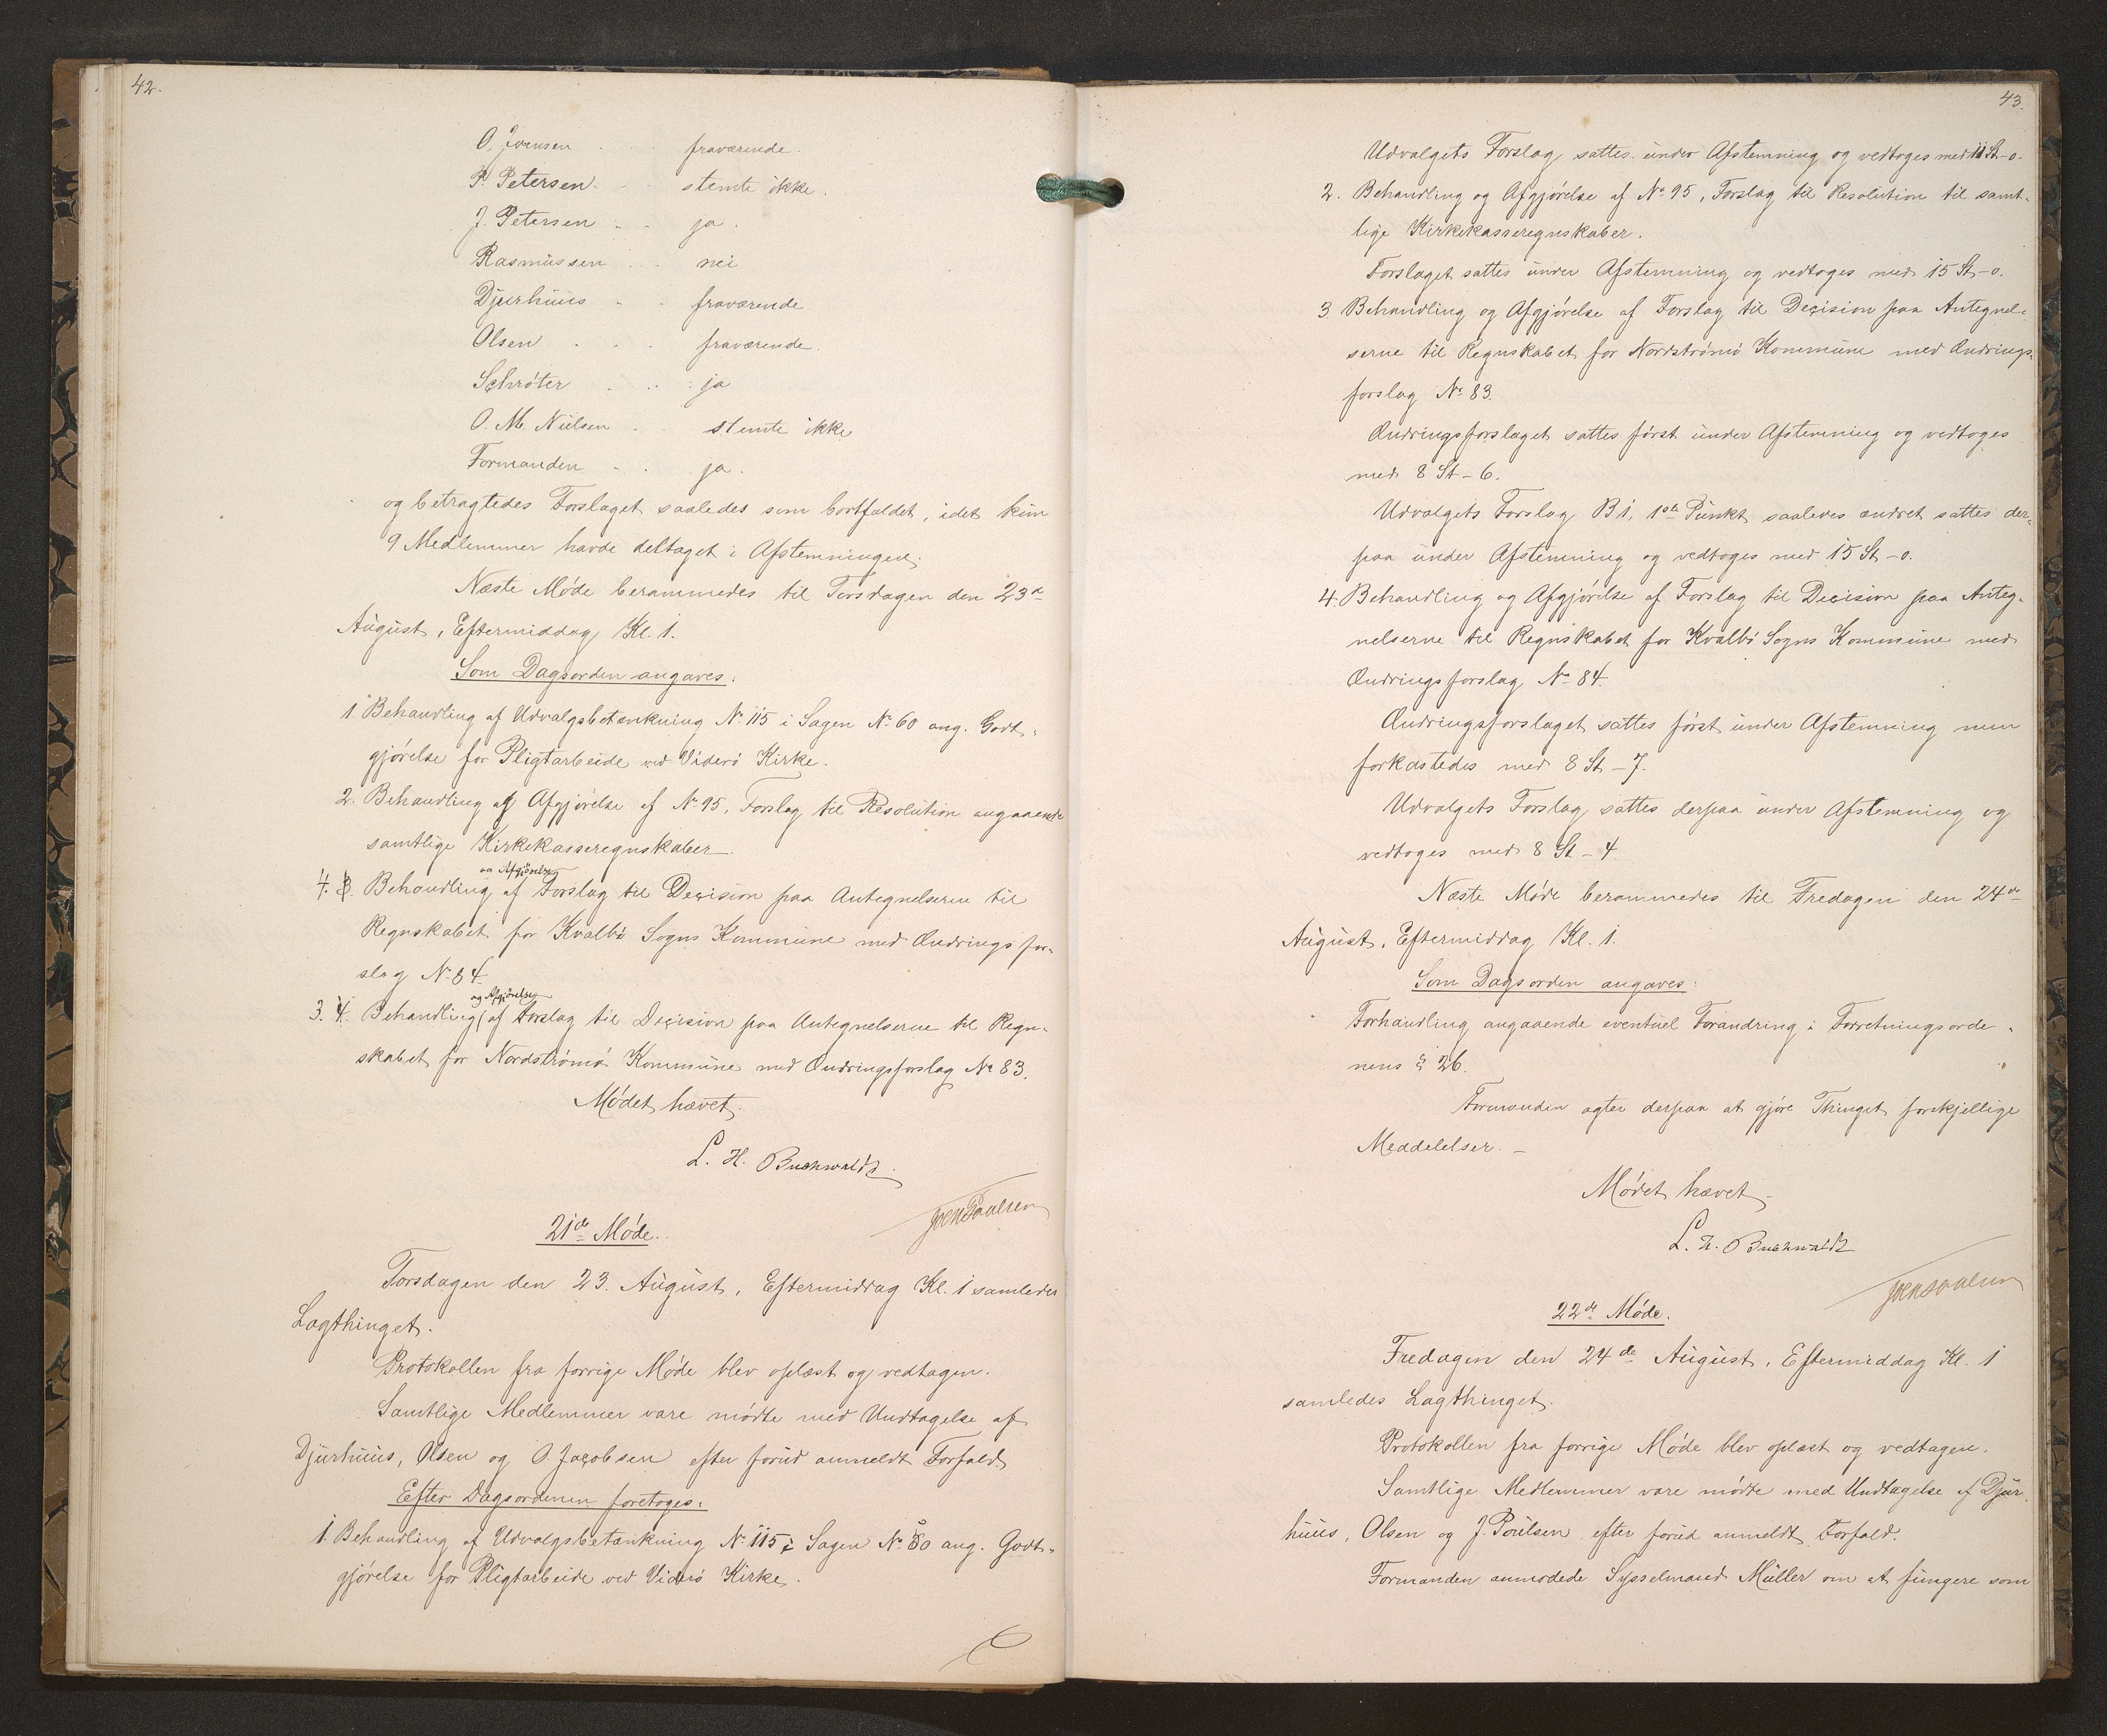 42.
O. Joensen . . fraværende.
P. Petersen . . stemte ikke.
J. Petersen . . ja.
Rasmussen . . nei
Djurhuus . . fraværende
Olsen . . . fraværende.
Schrøter . . . ja
O. M. Nielsen . . stemte ikke
Formanden . . ja.
og betragtedes Forslaget saaledes som bortfaldet, idet kun
9 Medlemmer havde deltaget i Afstemningen.
Næste Møde berammedes til Torsdagen den 23de
August, Eftermiddag Kl. 1.
Som Dagsorden angaves:
1. Behandling af Udvalgsbetænkning No 115 i Sagen No 60 ang. Godt-
gjørelse for Pligtarbeide ved Viderø Kirke.
2. Behandling og Afgjørelse af No 95, Forslag til Resolution angaaende
samtlige Kirkekasseregnskaber
og Afgjørelse
4. 3. Behandling af Forslag til Decision paa Antegnelserne til
Regnskabet for Kvalbø Sogns Kommune med Ændringsfor-
slag No 84
og Afgjørelse
3. 4. Behandling af Forslag til Decision paa Antegnelserne til Regn-
skabet for Nordstrømø Kommune med Ændringsforslag No 83.
Mødet hævet.
L. H. Buchwaldt.
Joen Poulsen
21de Møde.
Torsdagen den 23. August, Eftermiddag Kl. 1 samledes
Lagthinget.
Protokollen fra forrige Møde blev oplæst og vedtagen.
Samtlige Medlemmer vare mødte med Undtagelse af
Djurhuus, Olsen og O. Jacobsen efter forud anmeldt Forfald.
Efter Dagsordenen foretoges:
1. Behandling af Udvalgsbetænkning No 115 i Sagen No 60 ang. Godt-
gjørelse for Pligtarbeide ved Viderø Kirke.
43.
Udvalgets Forslag sattes under Afstemning og vedtoges med 11 St-0.
2. Behandling og Afgjørelse af No 95, Forslag til Resolution til samt-
lige Kirkekasseregnskaber.
Forslaget sattes under Afstemning og vedtoges med 15 St-0.
3. Behandling og Afgjørelse af Forslag til Decision paa Antegnel-
serne til Regnskabet for Nordstrømø Kommune med Ændrings-
forslag No 83.
Ændringsforslaget sattes først under Afstemning og vedtoges
med 8 St-6.
Udvalgets Forslag B1, 1ste Punkt saaledes ændret sattes der-
paa under Afstemning og vedtoges med 15 St-0.
4. Behandling og Afgjørelse af Forslag til Decision paa Anteg-
nelserne til Regnskabet for Kvalbø Sogns Kommune med
Ændringsforslag No 84.
Ændringsforslaget sattes først under Afstemning men
forkastedes med 8 St-7.
Udvalgets Forslag sattes derpaa under Afstemning og
vedtoges med 8 St-4.
Næste Møde berammedes til Fredagen den 24de
August, Eftermiddag Kl. 1.
Som Dagsorden angaves:
Forhandling angaaende eventuel Forandring i Forretningsorde-
nens § 26.
Formanden agter derpaa at gjøre Thinget forskjellige
Meddelelser. –
Mødet hævet.
L. H. Buchwaldt
Joen Poulsen
22de Møde.
Fredagen den 24de August, Eftermiddag Kl. 1
samledes Lagthinget.
Protokollen fra forrige Møde blev oplæst og vedtagen.
Samtlige Medlemmer vare mødte med Undtagelse af Djur-
huus, Olsen og J. Poulsen efter forud anmeldt Forfald.
Formanden anmodede Sysselmand Müller om at fungere som